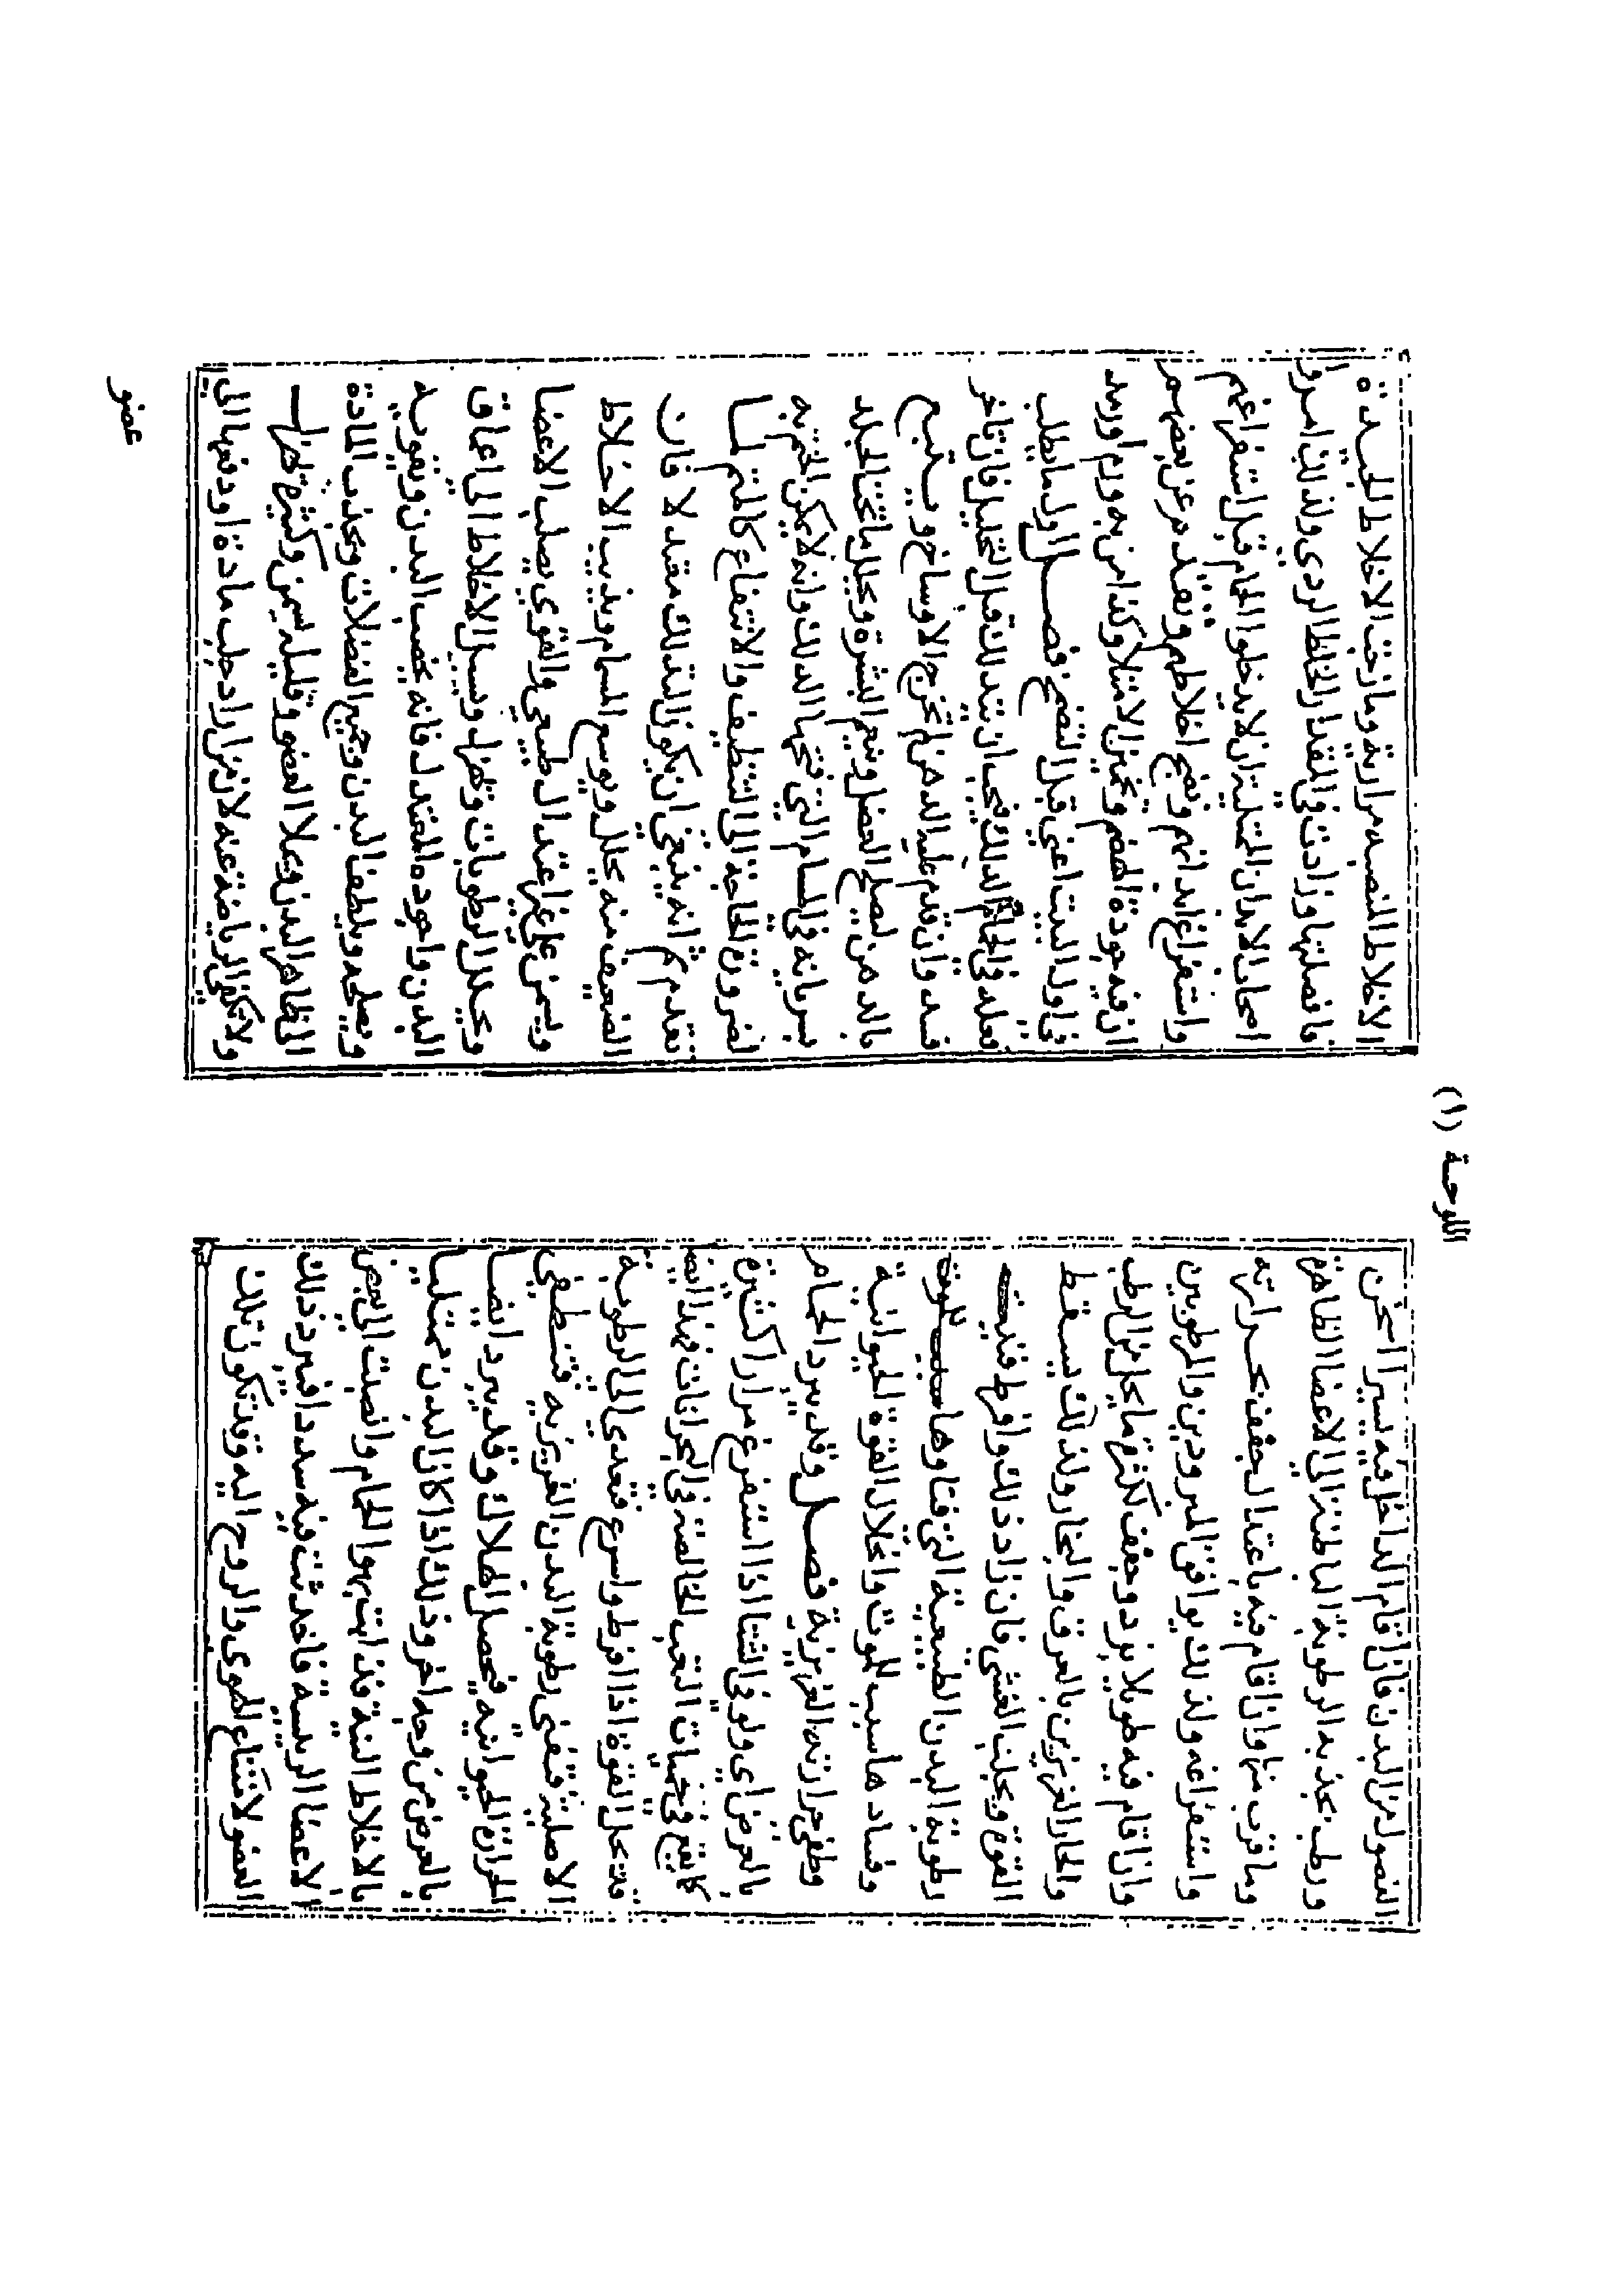 اللوحة (١)
الفصول من البدن فان اقام الداخل فيه يسيرا اسخن
ورطب بجذبه الرطوبة الباطنة الى الاعضا الظاهرة
وما قرب منها وان اقام فيه باعتدال جفف بحرارته
واستفراغه ولذلك يوافق المبرودين والمرطوبين
وان اقام فيه طويلا برد وجفف لكثرة ما يحلل من الرطب
والحار الغريزين بالعرق والبخار ولذلك يسقط
القوة ويجلب الغشي فان زاد ذلك وافرط فنيت
رطوبة البدن الطبيعية التي فناوها سبب للموت
وفسادها سبب للموت واختلال القوة الحيوانية
وطفي حرارته الغريزية فصل وقد يبرد الحمام
بالعرض اي ولو في الشتا اذا استفرغ مرارا كثيرة
كما يقع في حميات التعب الخالصة في البحرانات فهذا ايضا
فتنحل القوة اذا افرط واسرع فتعدي الى الرطوبة
الاصلية فتفنى رطوبة البدن الغريزيه فتنطفي
الحرارة الحيوانيه فيحصل الهلاك وقد يبرد ايضا
بالعرض من وجه اخر وذلك اذا كان البدن ممتليا
بالاخلاط النية فذابت بهوا الحمام وانصبت الى بعض
الاعضا الرييسة فاحدثت فيه سددا فيبرد ذلك
العضو لامتناع الهوى والروح اليه وقد تكون تلك
الاخلاط المنصبه مرارية وما زجت الاخلاط الجيدة
فافسدتها وزادت في المقدار الخلط الردي ولذلك امروا
اصحاب الابدان الممتلية ان لا يدخلوا الحمام قبل استفراغهم
واستفراغ ابدانهم ونضج اخلاطهم عن بعضهم
ان فيه جودة الهضم الامتلا وكذا من به ورم او رمد
في اوله اعني قبل النضج فصل اول ما يطلب
فعله في الحمام الدلك فيجب ان تتدلك قبل التحليل فان تاخر
فسد وان قدم عليه الدهن لم تخرج الاوساخ
بالدهن ليصلح العضل وينعم البشرة ويحلل ما تحت الجلد
بسريانه في المسام التي فتحها الدلك وانه لا يمكن الختم به
لضرورة الحاجة الى التنظيف والانتفاع لما
تقدم ثم انه ينبغي ان يكون التدلك معتدلا فان
الضعيف منه يحلل ويوسع المسام ويذيب الاخلاط
ويسمن على غير اعتدال طبيعي والقوي يصلب الاعضا
ويحلل الرطوبات وتهزل ويسيل الاخلاط الى اعماق
البدن واجوده المعتدل فانه يخصب البدن ويقويه
ويصلحه ويلطف البدن الفضلات ويجذب المادة
الى ظاهر البدن ويملا العضو وقليله يسمن وكثيره يهزل
ولا تكفي الرياضة عنه لان من اراد جلب مادة او دفعها الى
عضو